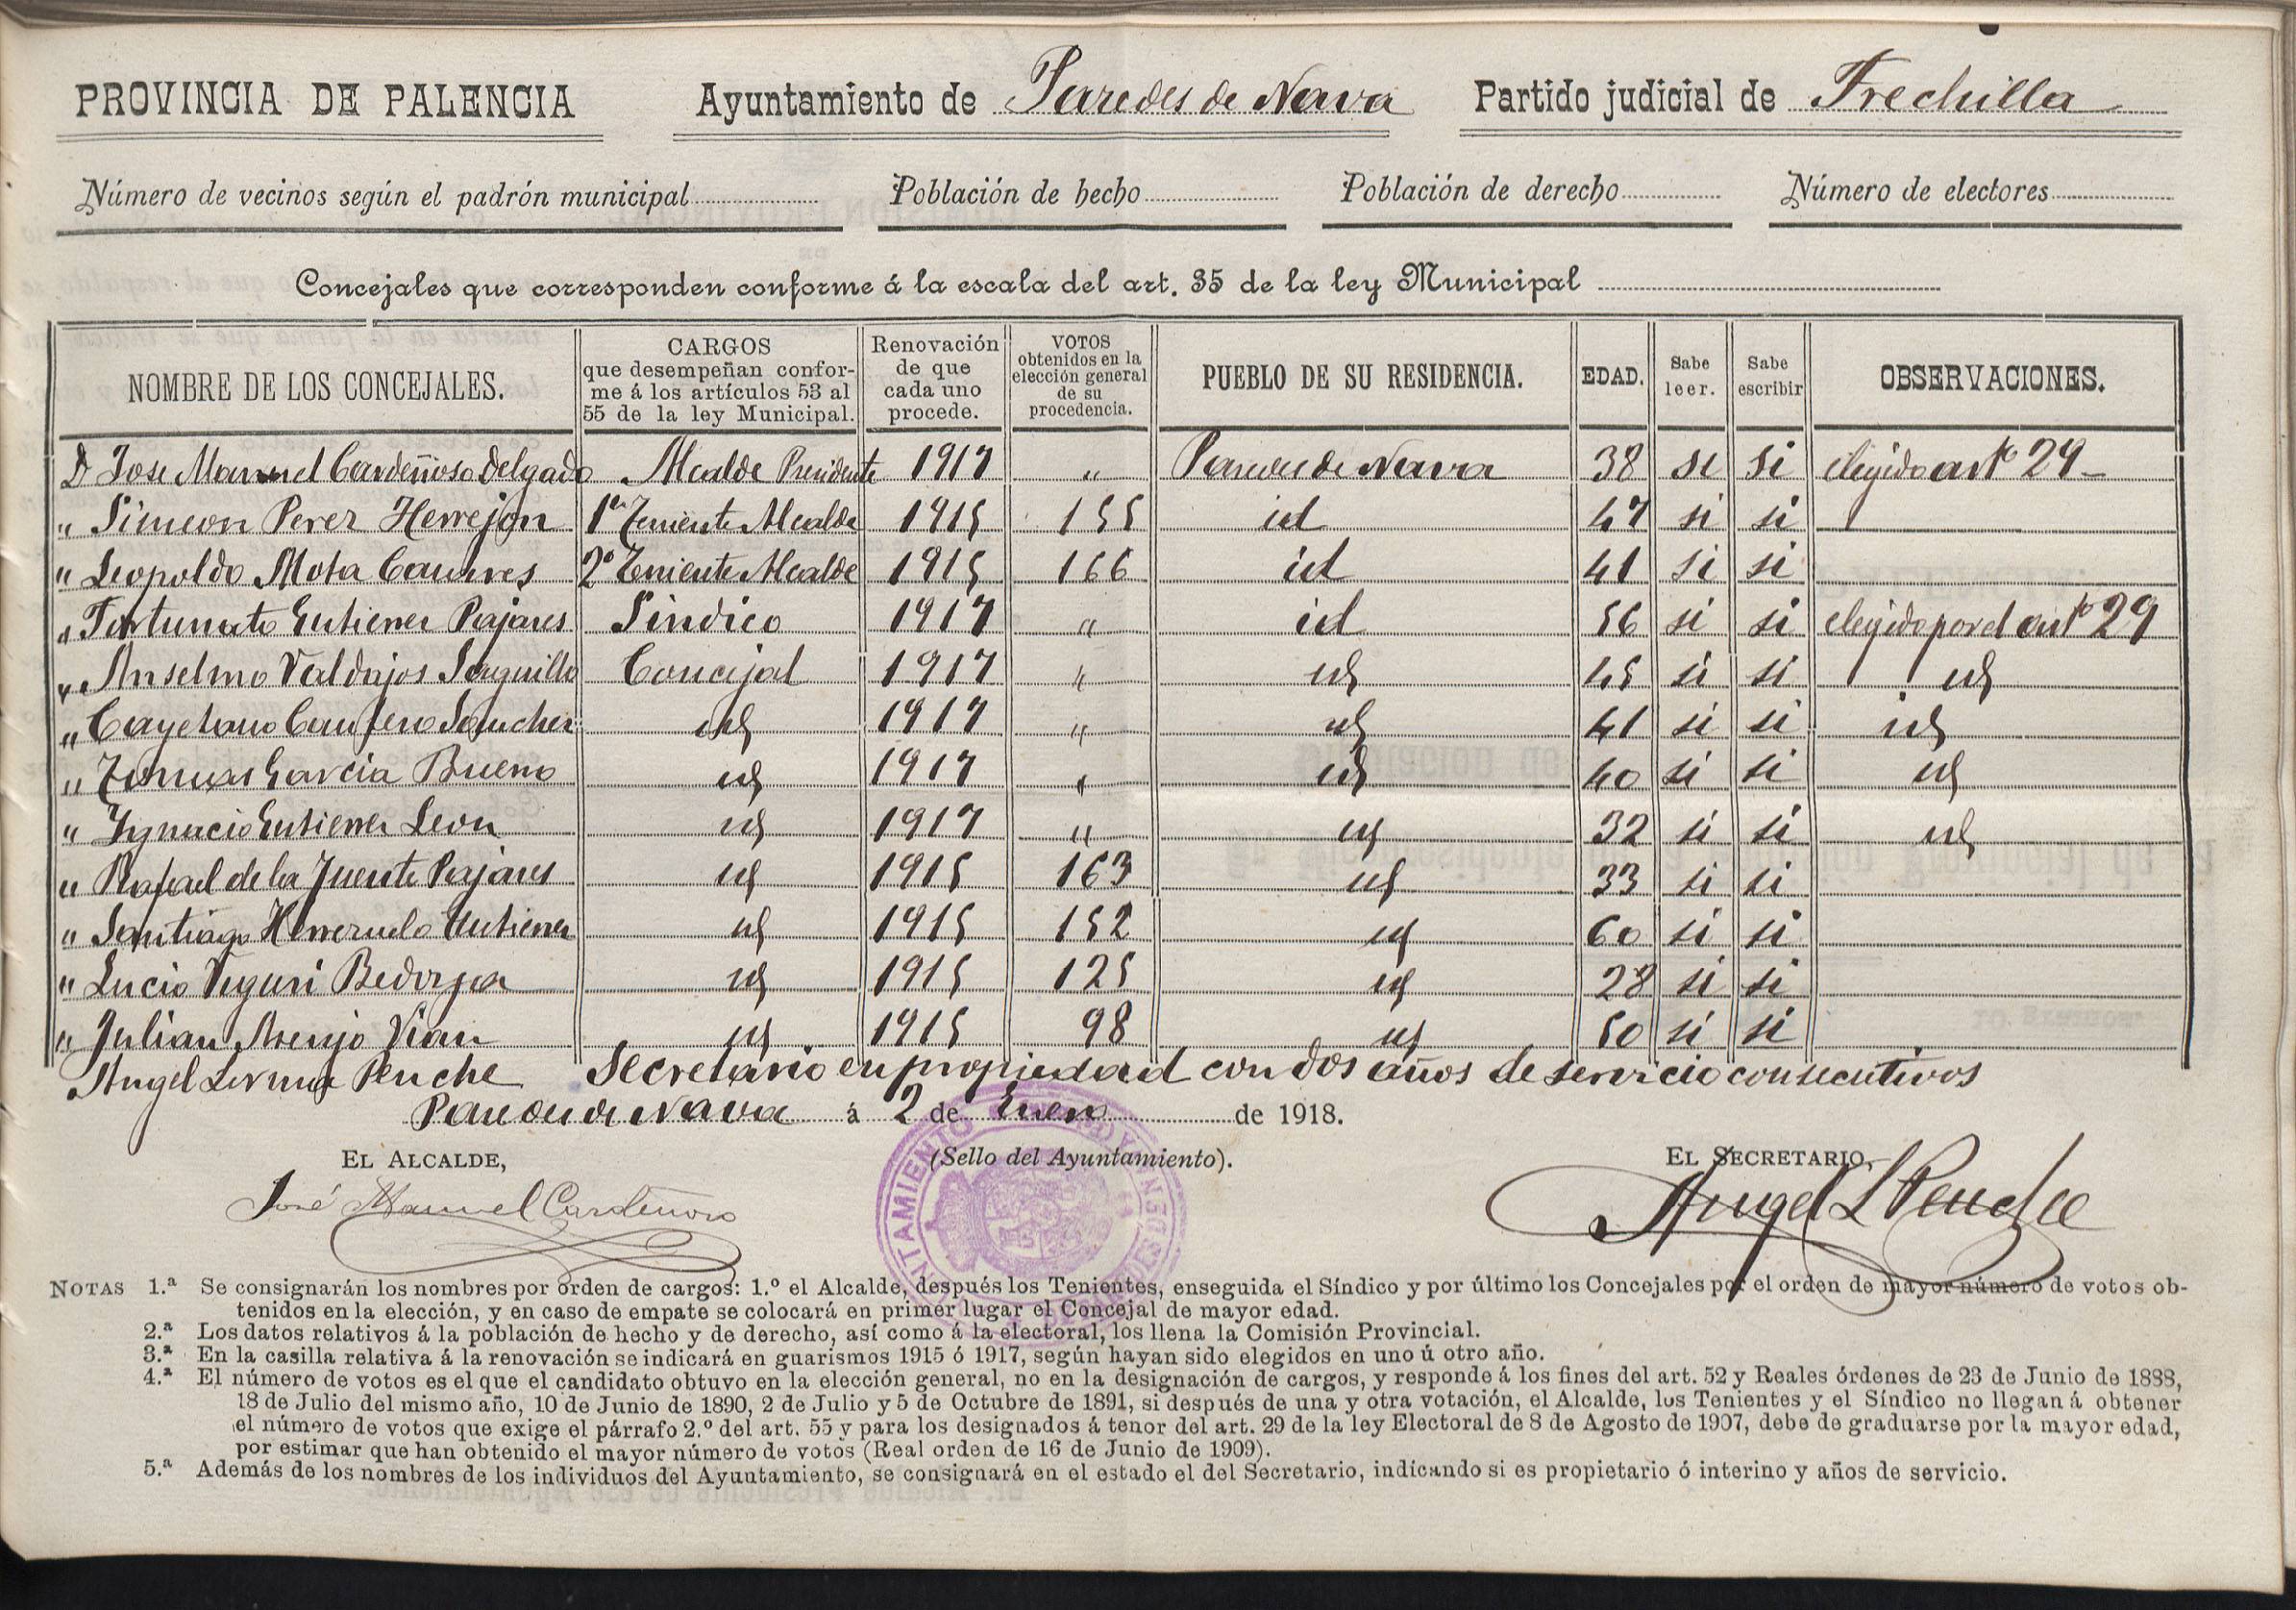 PROVINCIA DE PALENCIA Ayuntamiento de Paredes de Nava Partido judicial de Frechilla
Número de vecinos según el padrón municipal Población de hecho Población de derecho Número de electores
Concejales que corresponden conforme á la escala del art. 35 de la ley Municipal
NOMBRE DE LOS CONCEJALES. CARGOS que desempeñan conforme á los artículos 53 al 55 de la ley Municipal. Renovación de que cada uno procede. VOTOS obtenidos en la elección general de su procedencia. PUEBLO DE SU RESIDENCIA. EDAD. Sabe leer. Sabe escribir OBSERVACIONES.
D Jose Manuel Cardeñoso Delgado Alcalde Presidente 1917 " Paredes de Nava 38 si si elegido artº 29
" Simeon Perez Herrejon 1er Teniente Alcalde 1915 155 id 47 si si
" Leopoldo Mota 2º Teniente Alcalde 1915 166 id 41 si si
" Fortunato Gutierrez Pajares Sindico 1917 " id 56 si si elegido por el artº 29
" Anselmo Valdajos Junquillo Concejal 1917 " id 45 si si id
" Cayetano Cantero Sanchez id 1917 " id 41 si si id
" Tomas Garcia Bueno id 1917 " id 40 si si id
" Ygnacio Gutierrez Leon id 1917 " id 32 si si id
" Rafael de la Fuente Pajares id 1915 163 id 33 si si
" Santiago Herreruelo Gutierrez id 1915 152 id 60 si si
" Lucio id 1915 125 id 28 si si
" Julian Asenjo Vian id 1915 98 id 50 si si
Angel Lerma Penche Secretario en propiedad con dos años de servicio consecutivos
Paredes de Nava á 2 de Enero de 1918.
EL ALCALDE, (Sello del Ayuntamiento). EL SECRETARIO,
José Manuel Cardeñoso Angel L Penche
AYUNTAMIENTO
NOTAS 1.ª Se consignarán los nombres por orden de cargos: 1.º el Alcalde, después los Tenientes, enseguida el Síndico y por último los Concejales por el orden de mayor número de votos ob-
tenidos en la elección, y en caso de empate se colocará en primer lugar el Concejal de mayor edad.
2.ª Los datos relativos á la población de hecho y de derecho, así como á la electoral, los llena la Comisión Provincial.
3.ª En la casilla relativa á la renovación se indicará en guarismos 1915 ó 1917, según hayan sido elegidos en uno ú otro año.
4.ª El número de votos es el que el candidato obtuvo en la elección general, no en la designación de cargos, y responde á los fines del art. 52 y Reales órdenes de 23 de Junio de 1888,
18 de Julio del mismo año, 10 de Junio de 1890, 2 de Julio y 5 de Octubre de 1891, si después de una y otra votación, el Alcalde, los Tenientes y el Síndico no llegan á obtener
el número de votos que exige el párrafo 2.º del art. 55 y para los designados á tenor del art. 29 de la ley Electoral de 8 de Agosto de 1907, debe de graduarse por la mayor edad,
por estimar que han obtenido el mayor número de votos (Real orden de 16 de Junio de 1909).
5.ª Además de los nombres de los individuos del Ayuntamiento, se consignará en el estado el del Secretario, indicando si es propietario ó interino y años de servicio.